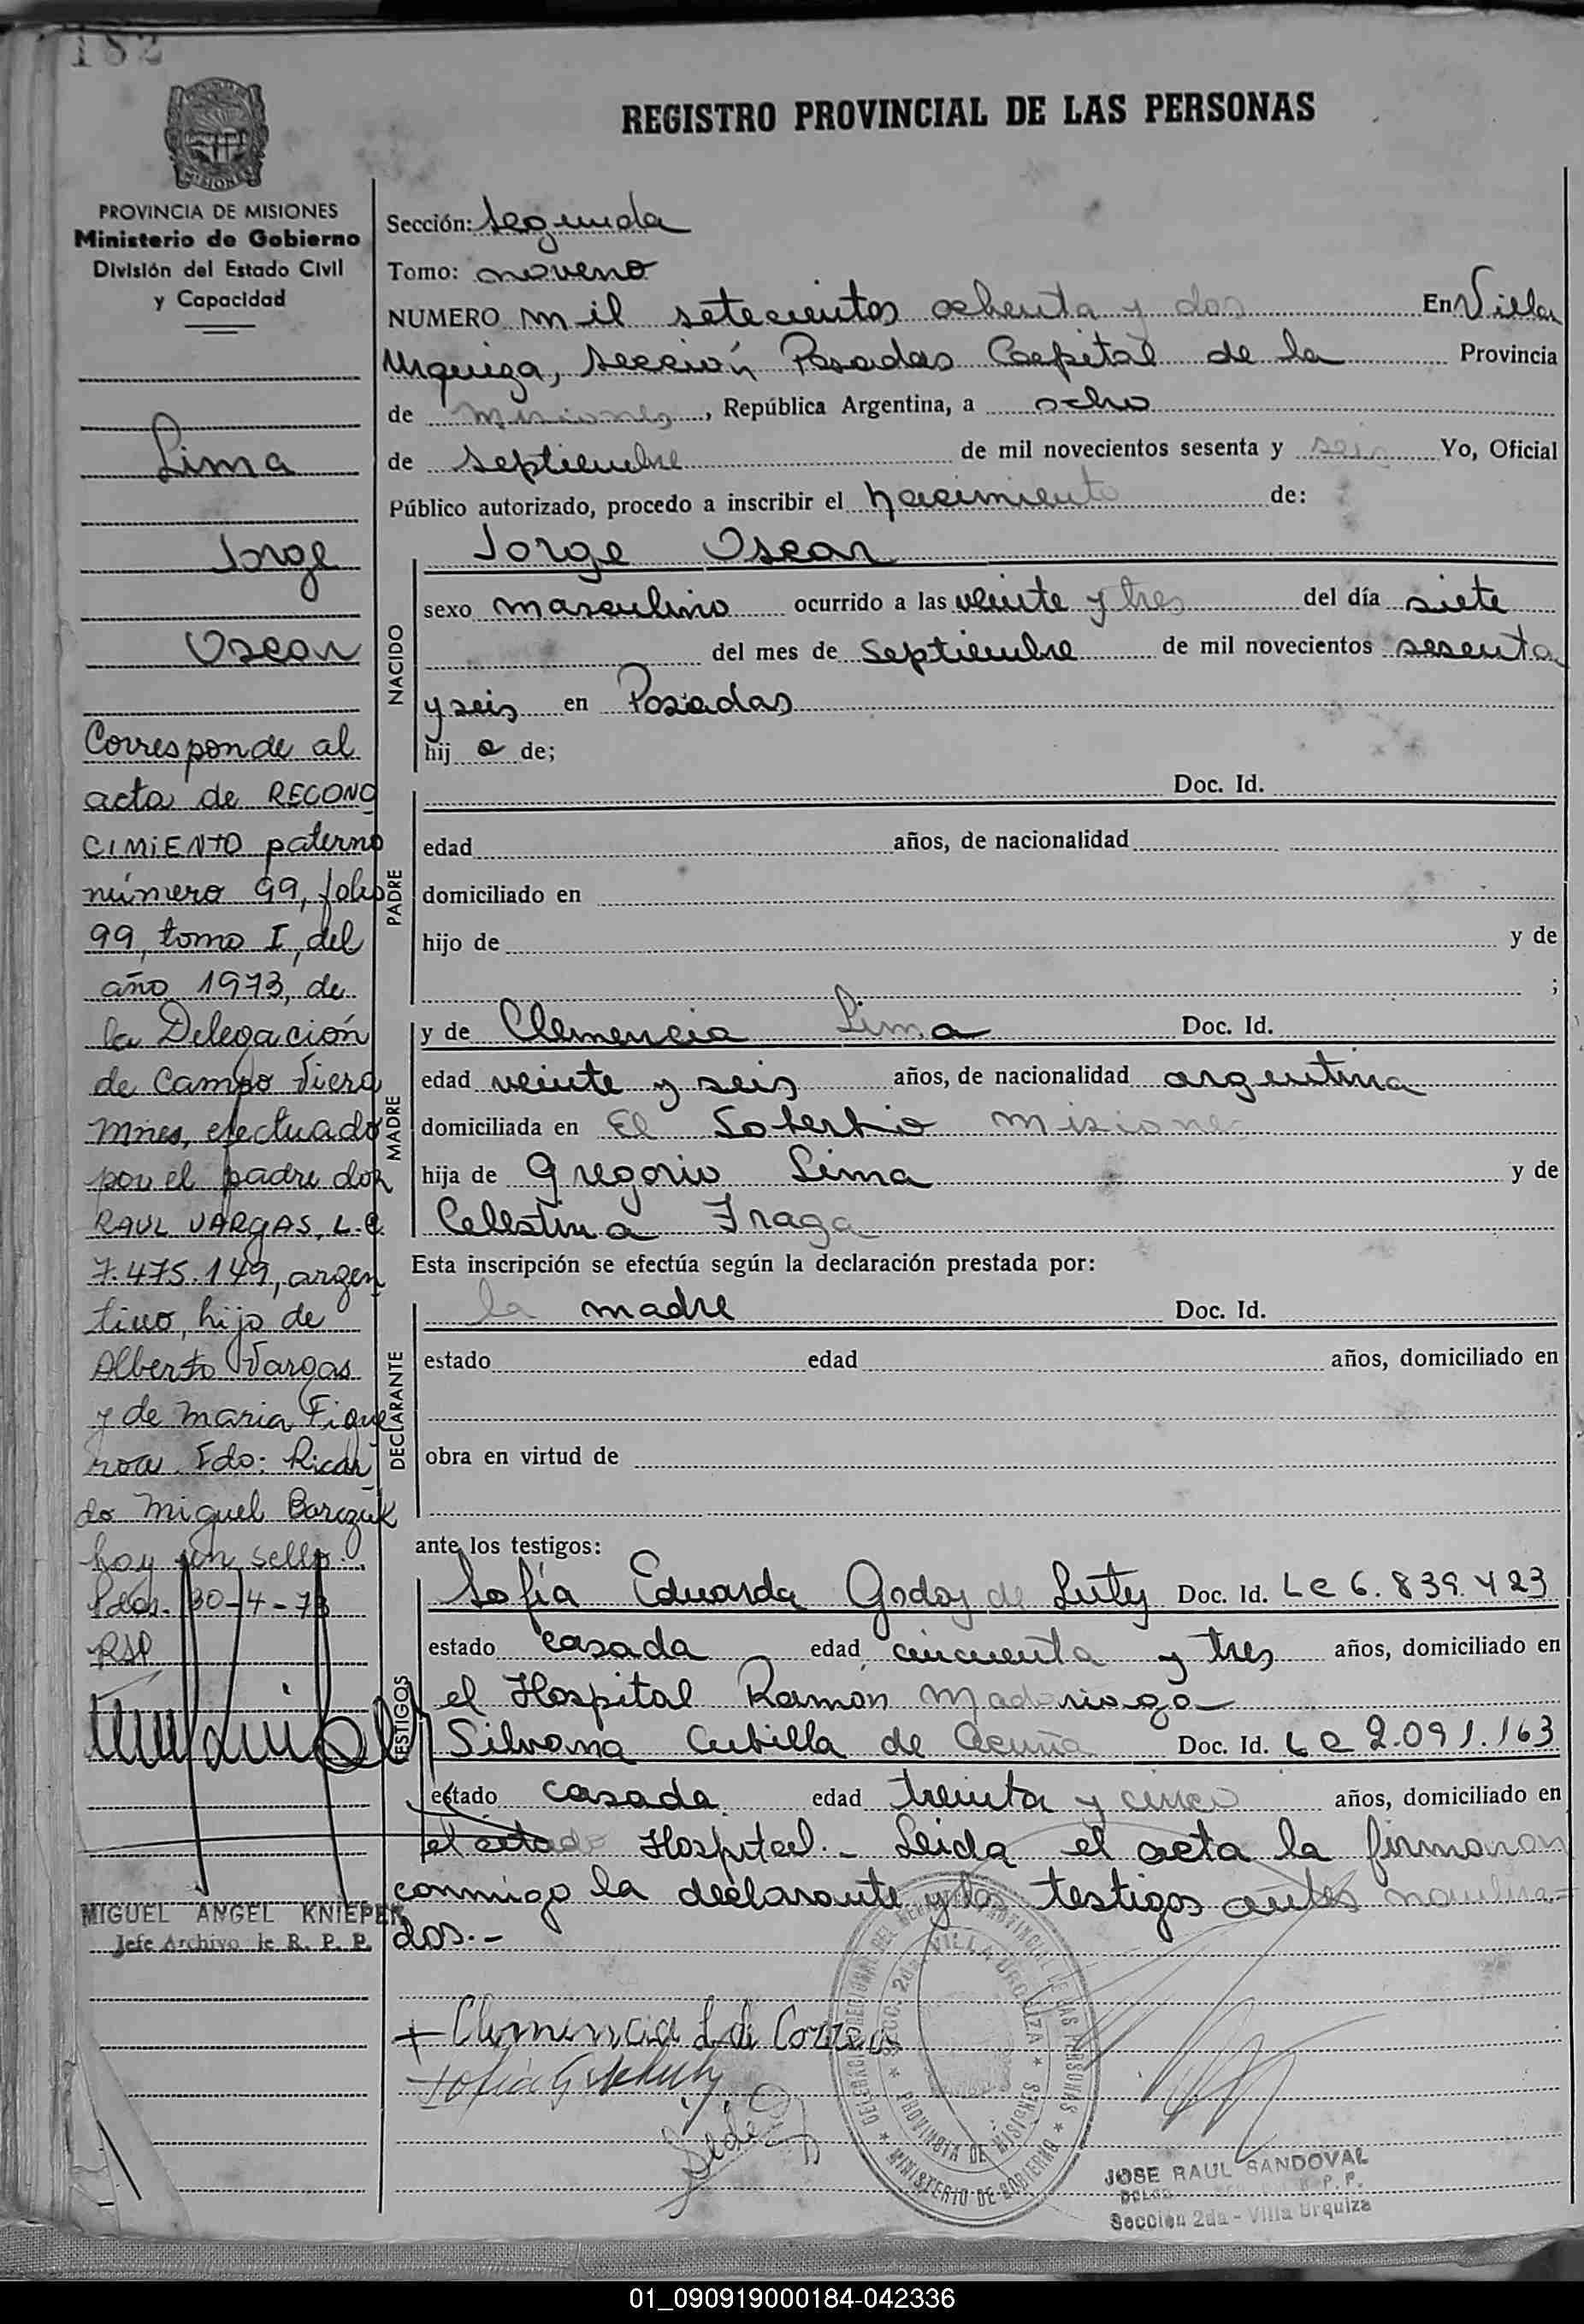 182
REGISTRO PROVINCIAL DE LAS PERSONAS
MISIONES
PROVINCIA DE MISIONES
Ministerio de Gobierno
División del Estado Civil
y Capacidad
Lima
Jorge
Oscar
Corresponde al
acta de RECONO
CIMIENTO paterno
número 99, folio
99, tomo I, del
año 1973, de
la Delegación
de Campo Viera
Mnes, efectuado
por el padre don
RAUL VARGAS, L.E.
7.475.149, argen
tino, hijo de
Alberto Vargas
y de Maria Figue
roa. Fdo: Ricar
do Miguel Barczuk
hay un sello.
Pdas. 30-4-73
MIGUEL ANGEL KNIEPER
Jefe Archivo de R. P. P.
Sección: Segunda
Tomo: noveno
NUMERO mil setecientos ochenta y dos En Villa
Urquiza, Sección Posadas Capital de la Provincia
de Misiones, República Argentina, a ocho
de Septiembre de mil novecientos sesenta y seis Yo, Oficial
Público autorizado, procedo a inscribir el Nacimiento de:
Jorge Oscar
NACIDO
sexo masculino ocurrido a las veinte y tres del día siete
del mes de Septiembre de mil novecientos sesenta
y seis en Posadas
hij o de;
PADRE
Doc. Id.
edad años, de nacionalidad
domiciliado en
hijo de y de
;
MADRE
y de Clemencia Lima Doc. Id.
edad veinte y seis años, de nacionalidad argentina
domiciliada en El Soberbio Misiones
hija de Gregorio Lima y de
Celestina Fraga
Esta inscripción se efectúa según la declaración prestada por:
DECLARANTE
la madre Doc. Id.
estado edad años, domiciliado en
obra en virtud de
ante los testigos:
TESTIGOS
Sofía Eduarda Godoy de Luty Doc. Id. LC 6.839.423
estado casada edad cincuenta y tres años, domiciliado en
el Hospital Ramon Madariaga
Silvana Cubilla de Acuña Doc. Id. LC 2.091.163
estado casada edad treinta y cinco años, domiciliado en
el citado Hospital.- Leida el acta la firmaron
conmigo la declarante y los testigos antes nombra-
dos.-
+ Clemencia L de Correa
DELEGACION REGIONAL DEL REGISTRO PROVINCIAL DE LAS PERSONAS
SECC. 2da. VILLA URQUIZA
PROVINCIA DE MISIONES
MINISTERIO DE GOBIERNO
JOSE RAUL SANDOVAL
R. P. P.
Sección 2da - Villa Urquiza
01_090919000184-042336